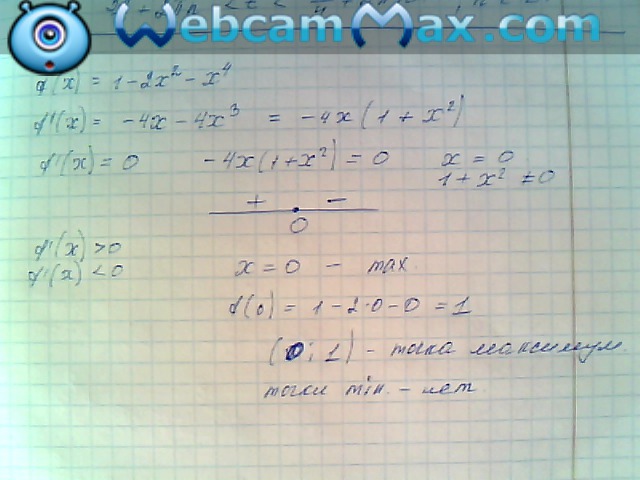 WebcamMax.com
f(x) = 1 - 2x² - x⁴
f'(x) = -4x - 4x³ = -4x(1 + x²)
f'(x) = 0 -4x(1+x²) = 0 x = 0
1 + x² ≠ 0
+ -
0
f'(x) > 0
f'(x) < 0
x = 0 - max.
f(0) = 1 - 2·0 - 0 = 1
(0; 1) - точка максимум.
точки min. - нет.